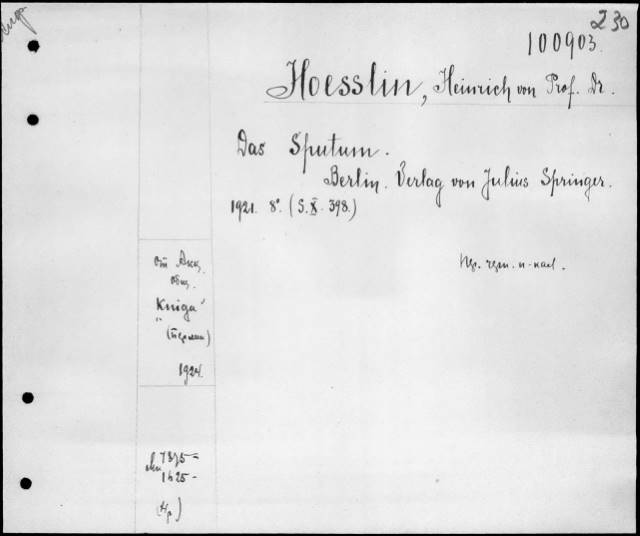 230
100903.
Hoesslin, Heinrich von Prof. Dr.
Das Sputum.
Berlin. Verlag von Julius Springer.
1921. 8°. (S. X. 398.)
От Акц.
общ.
"Kniga"
(Берлин)
1924.
1625-